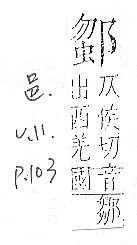 仄侯切音鄒
出西羌國
邑.
V.11.
p.103